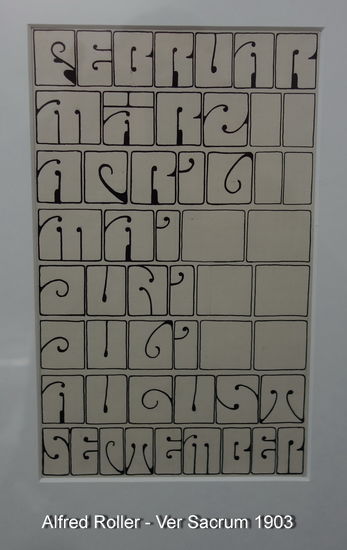 FEBRUAR
MÄRZ
APRIL
MAI
JUNI
JULI
AUGUST
SEPTEMBER
Alfred Roller - Ver Sacrum 1903